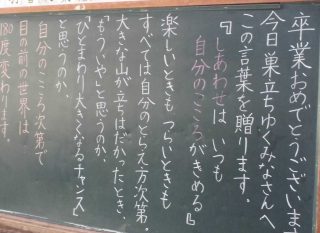 卒業おめでとうございます
今日巣立ちゆくみなさんへ
この言葉を贈ります。
『しあわせは いつも
自分のこころがきめる』
楽しいときも つらいときも
すべては自分のとらえ方次第。
大きな山が立ちはだかったとき、
「もういや」と思うのか、
「ひとまわり大きくなるチャンス」
と思うのか、
自分のこころ次第で
目の前の世界は
180度変わります。